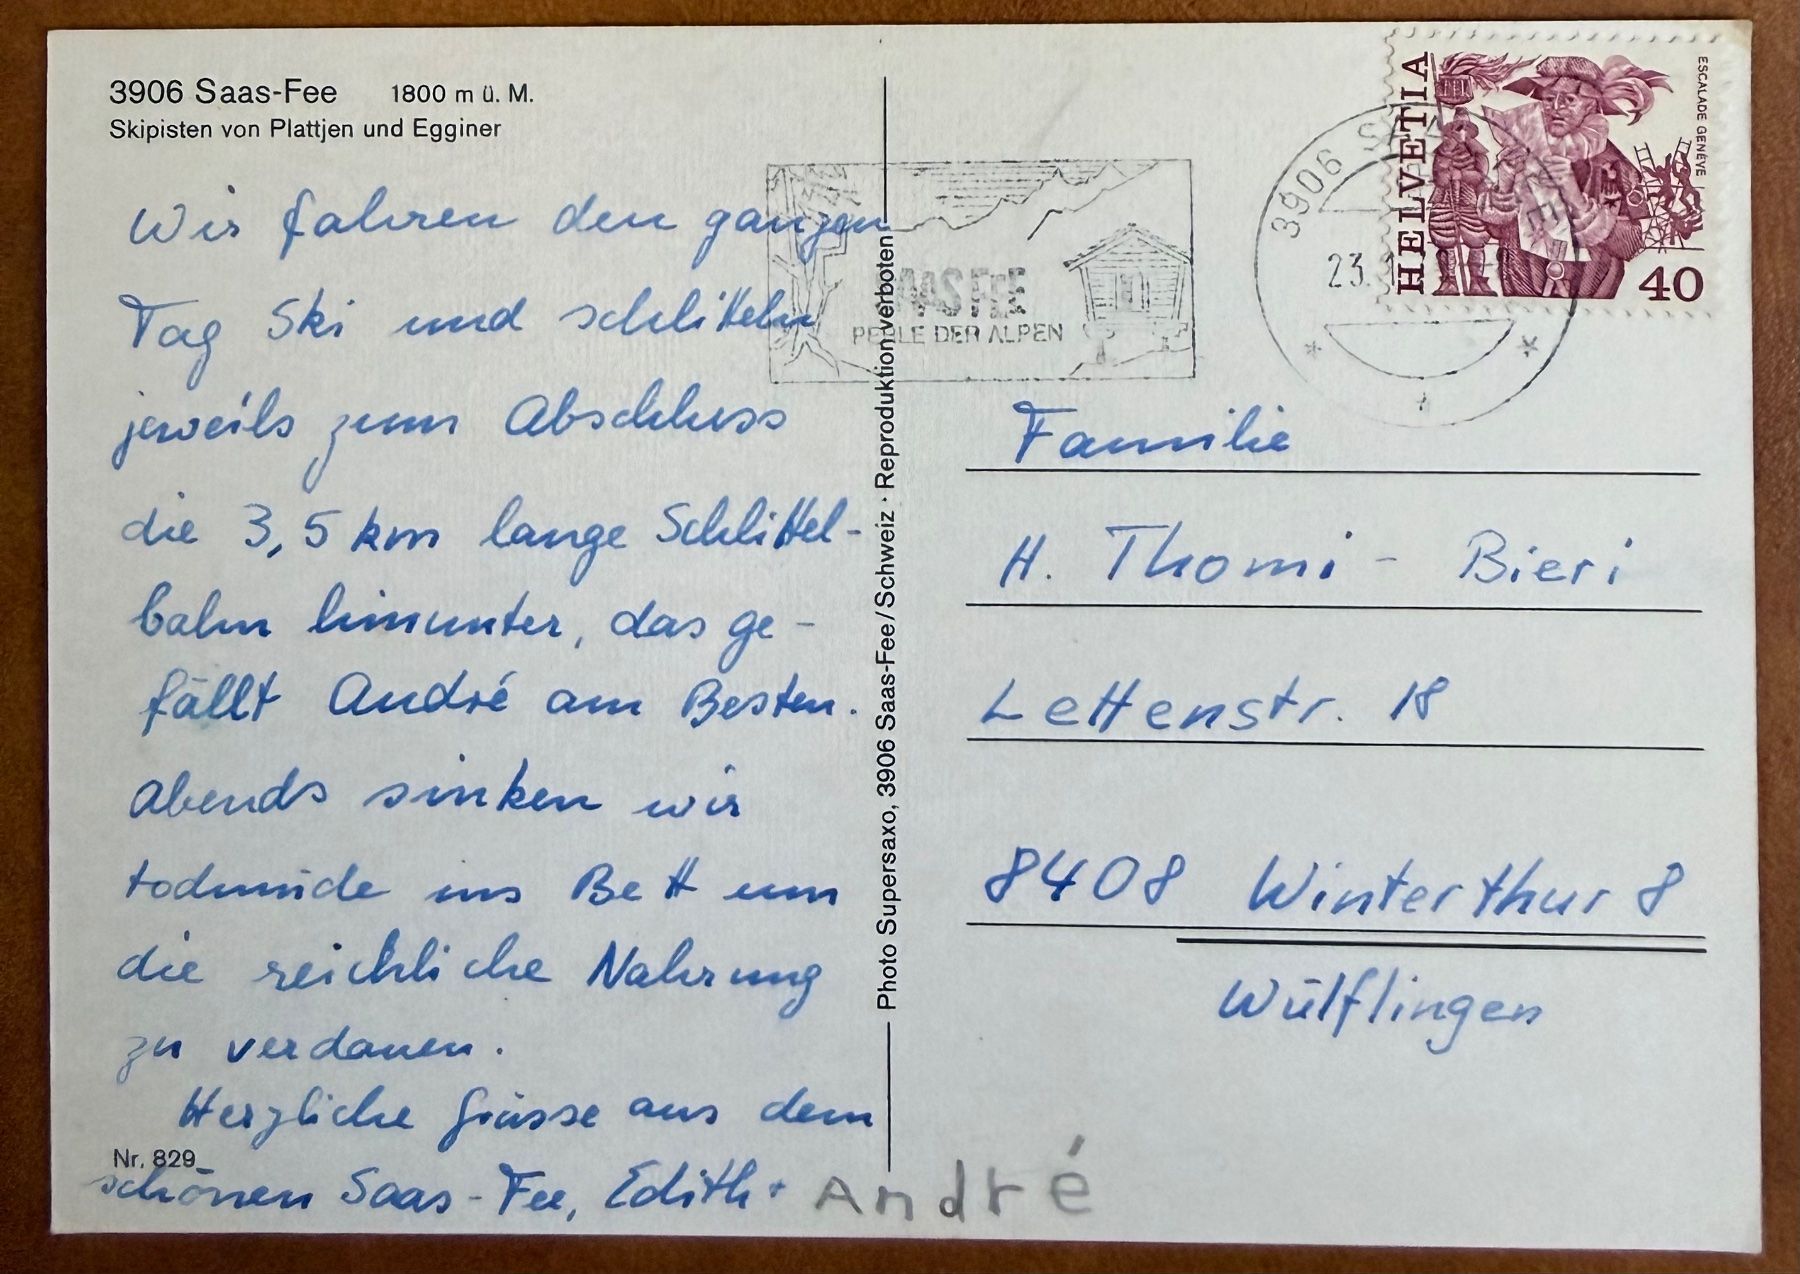 3906 Saas-Fee 1800 m ü. M.
Skipisten von Plattjen und Egginer
Wir fahren den ganzen
Tag Ski und schlitteln
jeweils zum Abschluss
die 3,5 km lange Schlittel-
bahn hinunter, das ge-
fällt André am Besten.
abends sinken wir
todmüde ins Bett um
die reichliche Nahrung
zu verdauen.
Herzliche Grüsse aus dem
schönen Saas-Fee, Edith + André
Nr. 829
Photo Supersaxo, 3906 Saas-Fee/Schweiz · Reproduktion verboten
SAAS FEE
PERLE DER ALPEN
3906 SAAS-FEE
23.
HELVETIA
ESCALADE GENÈVE
40
Familie
H. Thomi - Bieri
Lettenstr. 18
8408 Winterthur 8
Wülflingen